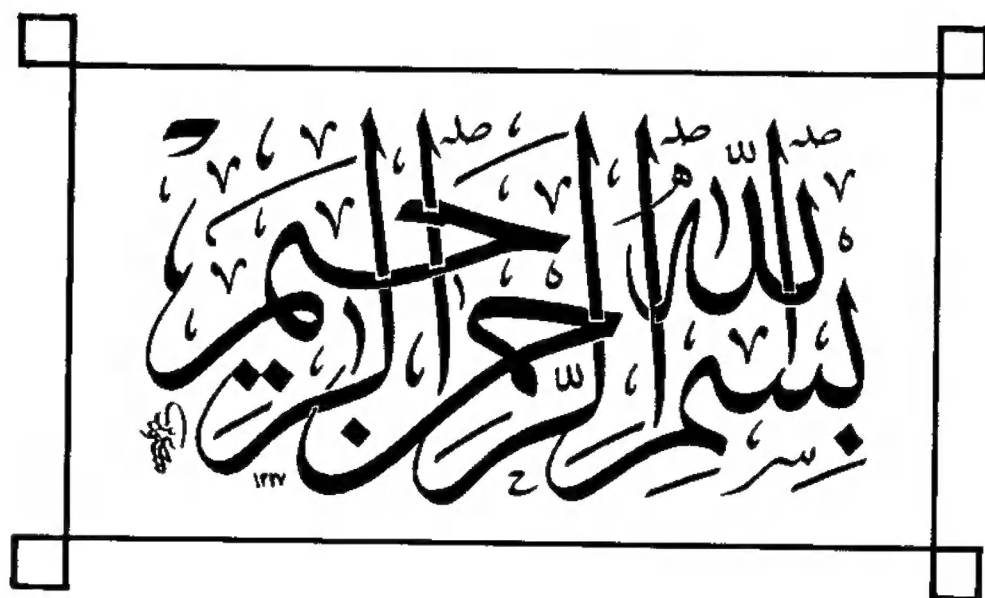 بِسْمِ اللّٰهِ الرَّحْمٰنِ الرَّحِيْمِ
١٣٣٧